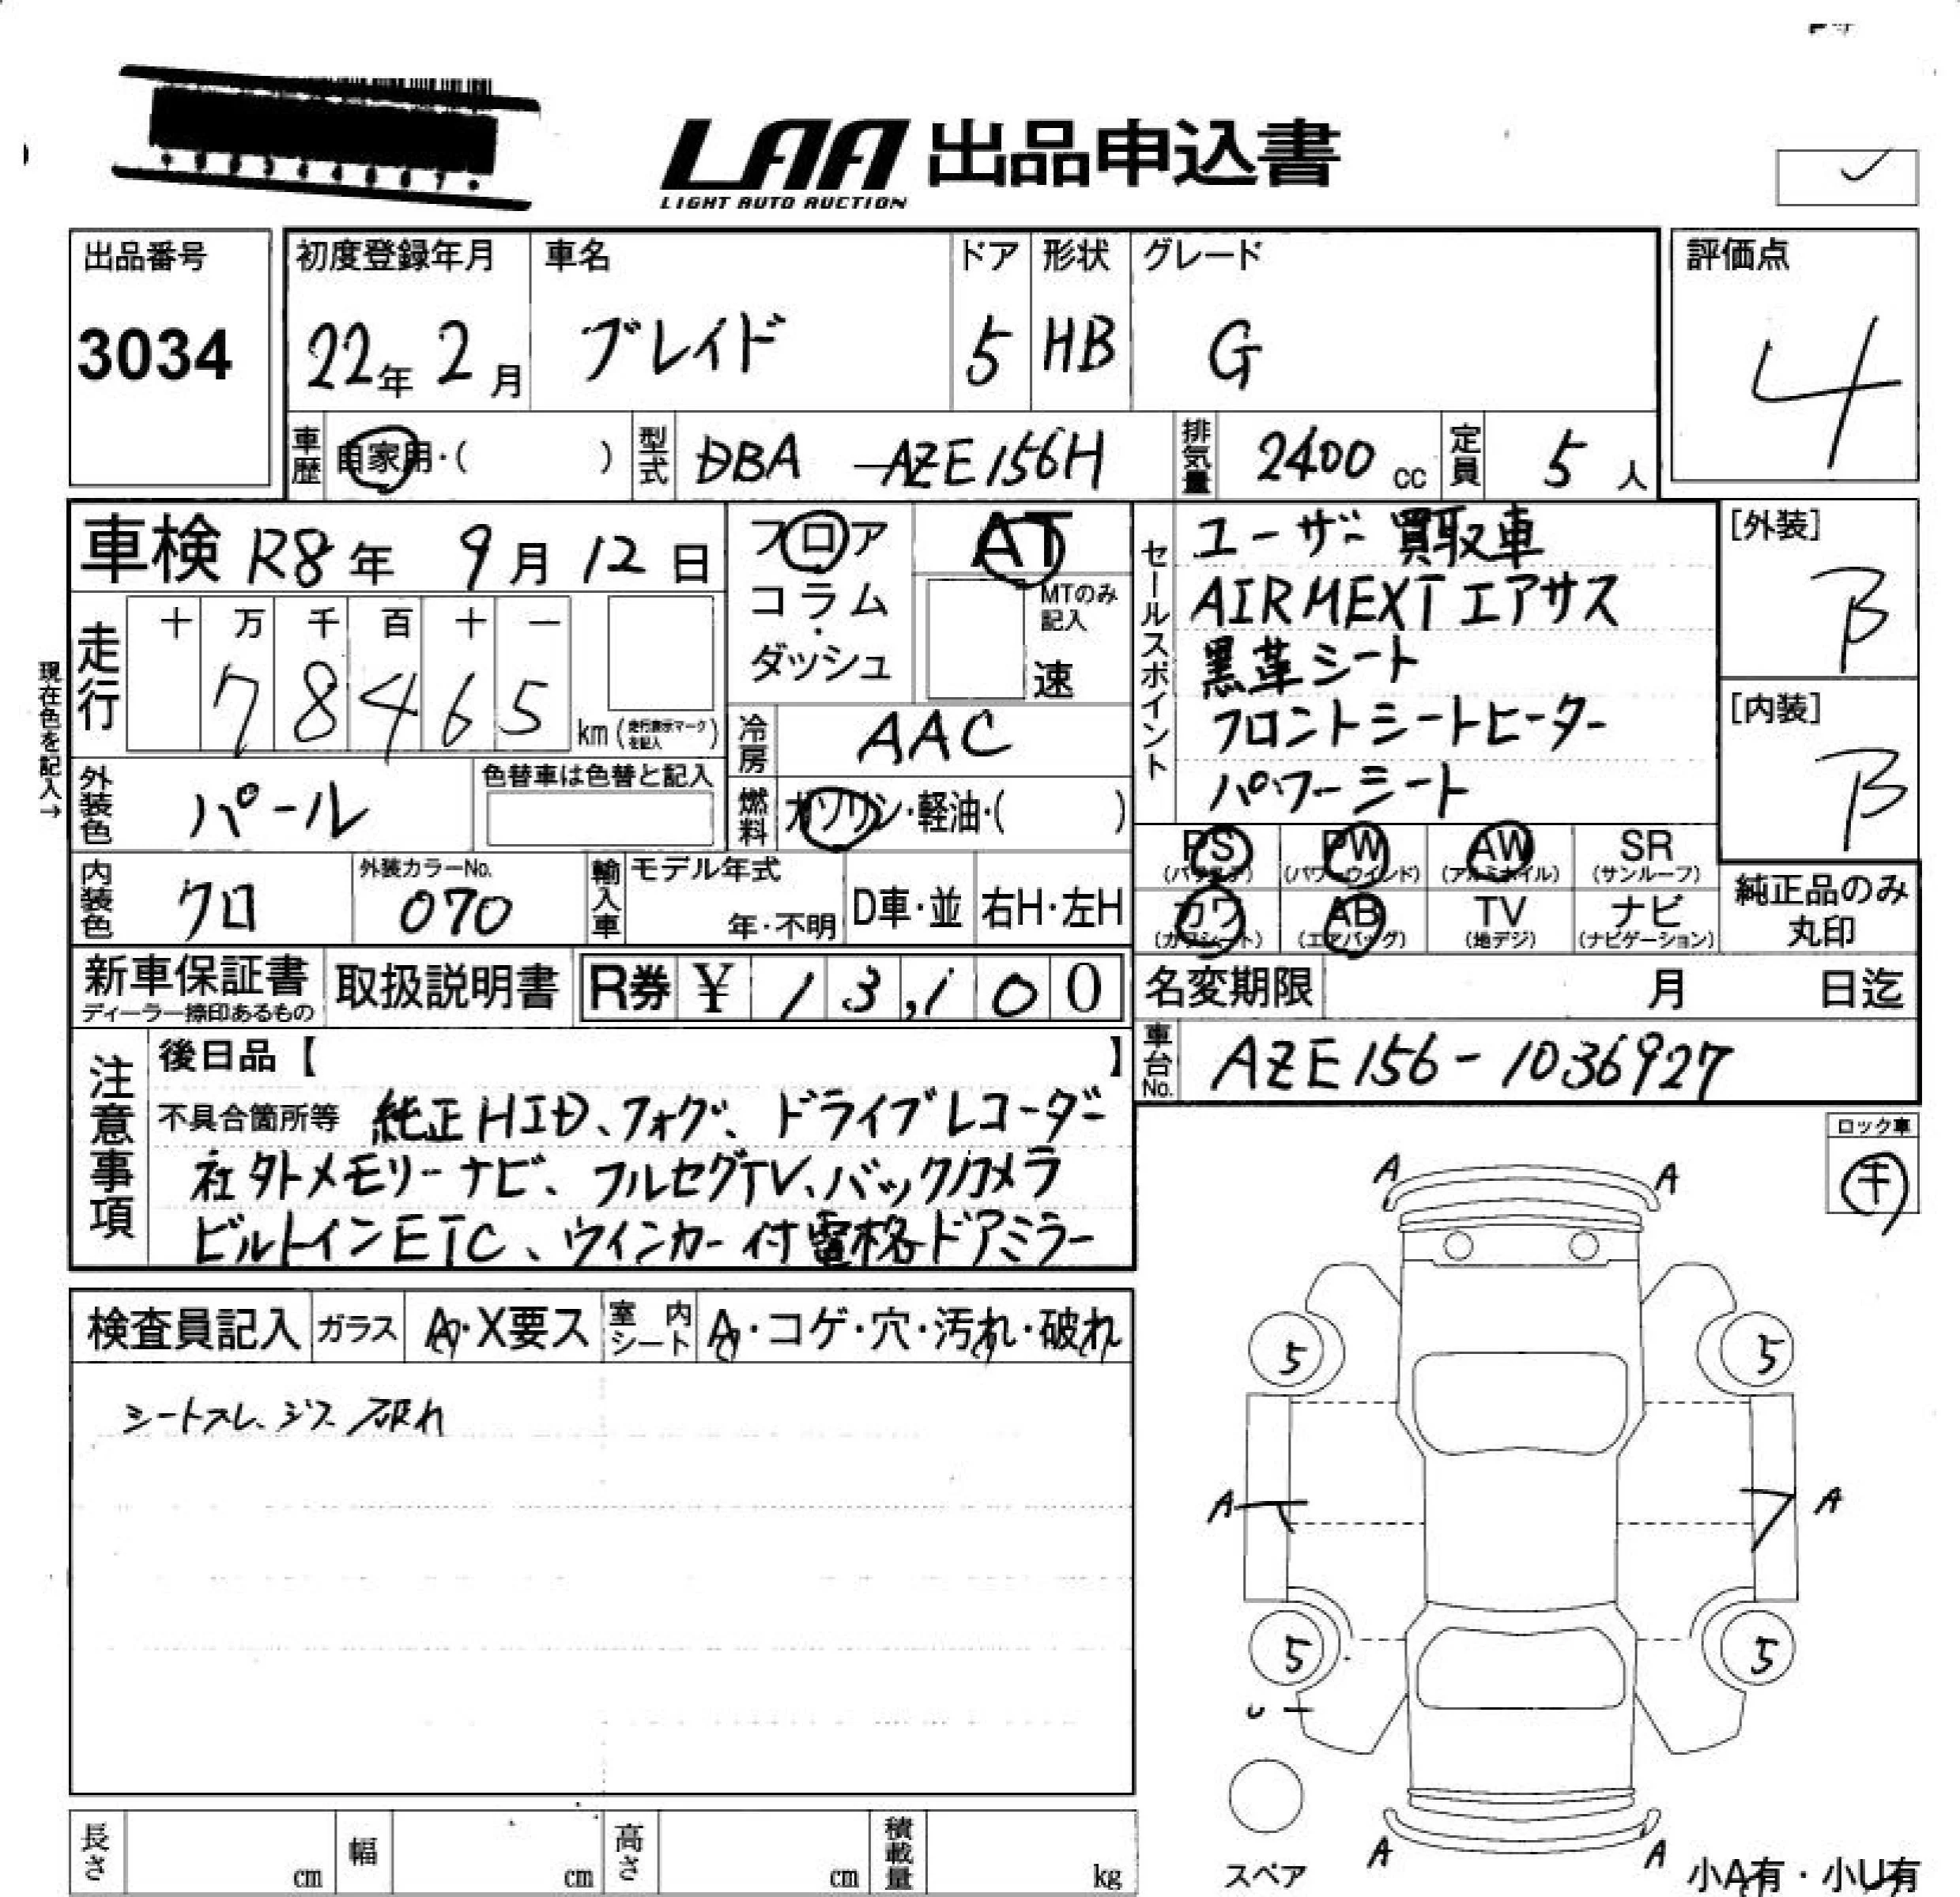 LAA 出品申込書
LIGHT AUTO AUCTION
出品番号
3034
初度登録年月
22年 2月
車名
ブレイド
ドア
5
形状
HB
グレード
G
評価点
4
車歴 自家用・( )
型式 DBA - AZE156H
排気量 2400 cc
定員 5 人
車検 R8年 9月 12日
フロア
コラム
・
ダッシュ
AT
MTのみ
記入
速
現在色を記入→
走行
十 万 千 百 十 一
7 8 4 6 5
km (走行表示マークを記入)
冷房 AAC
外装色 パール
色替車は色替と記入
燃料 ガソリン・軽油・( )
内装色 クロ
外装カラーNo.
070
輸入車
モデル年式
年・不明
D車・並
右H・左H
セールスポイント
ユーザー買取車
AIRMEXTエアサス
黒革シート
フロントシートヒーター
パワーシート
[外装]
B
[内装]
B
PS
(パワステ)
PW
(パワーウインド)
AW
(アルミホイル)
SR
(サンルーフ)
カワ
(カワシート)
AB
(エアバッグ)
TV
(地デジ)
ナビ
(ナビゲーション)
純正品のみ
丸印
新車保証書
ディーラー捺印あるもの
取扱説明書
R券 ¥ 13,100
名変期限 月 日迄
車台No. AZE156-1036927
注意事項
後日品【 】
不具合箇所等 純正HID、フォグ、ドライブレコーダー
社外メモリーナビ、フルセグTV、バックカメラ
ビルトインETC、ウインカー付電格ドアミラー
ロック車
キ
検査員記入
ガラス A・X要ス
室内シート A・コゲ・穴・汚れ・破れ
シートスレ、シワ 破れ
A A
5 5
A A
5 5
A A
スペア
小A有・小U有
長さ cm
幅 cm
高さ cm
積載量 kg